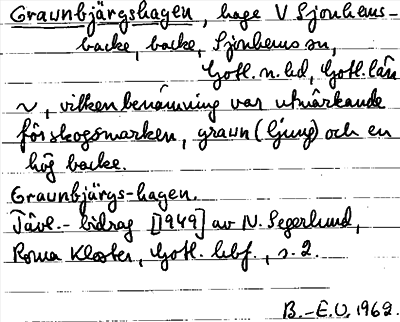 Graunbjärgshagen, hage V Sjonhems-
backe, backe, Sjonhems sn,
Gotl. n. hd, Gotl. län
~, vilken benämning var utmärkande
för skogsmarken, graun (ljung) och en
hög backe.
Graunbjärgs-hagen.
Tävl.-bidrag [1949] av N. Segerlund,
Roma Kloster, Gotl. hbf., s. 2.
B.-E.O. 1962.